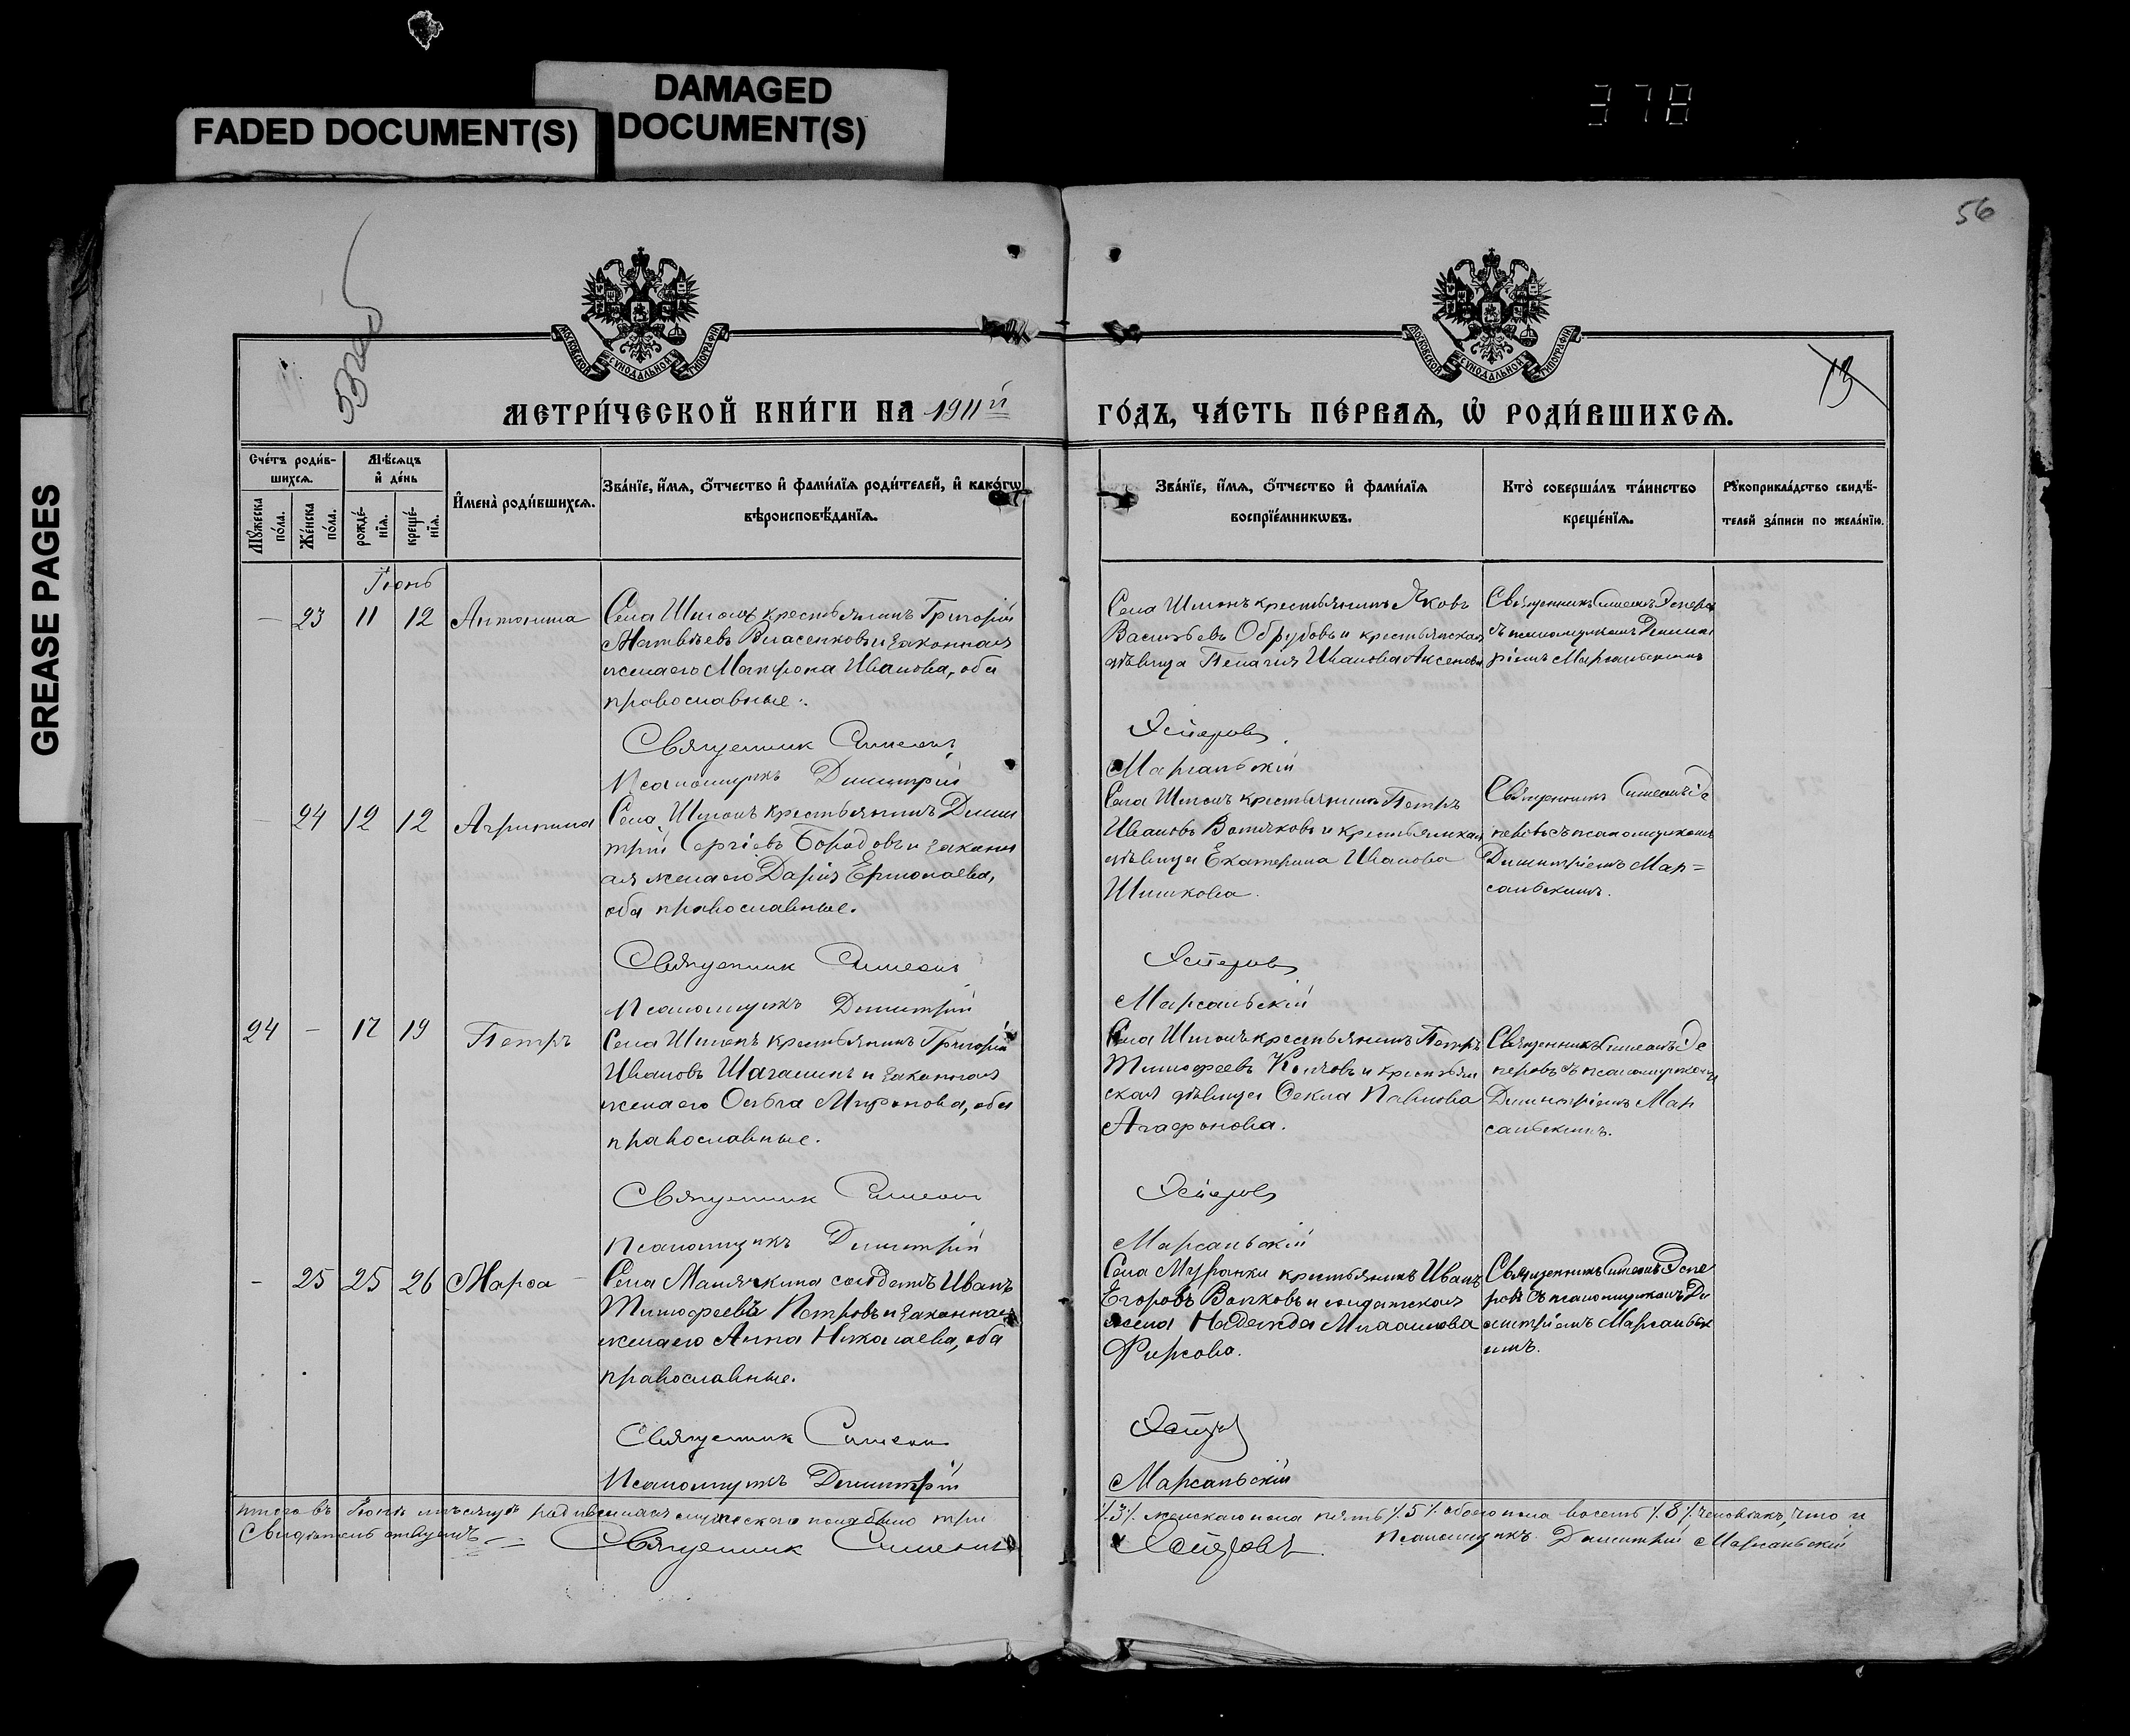 DAMAGED
DOCUMENT(S)
FADED DOCUMENT(S)
GREASE PAGES
378
56
13
МОСКОВСКОЙ СѴНОДАЛЬНОЙ ТИПОГРАФІИ
МОСКОВСКОЙ СѴНОДАЛЬНОЙ ТИПОГРАФІИ
МЕТРИ́ЧЕСКОЙ КНИ́ГИ НА 1911й
ГО́ДЪ, ЧА́СТЬ ПЕ́РВАѦ, Ѡ҆ РОДИ́ВШИХСѦ.
Сче́тъ роди́в-
шихсѧ.
Мꙋ́жеска по́ла.
Же́нска по́ла.
Мѣ́сѧцъ
и҆ де́нь
рожде́-
нїѧ.
креще́-
нїѧ.
И҆мена̀ роди́вшихсѧ.
Зва́нїе, и҆́мѧ, ѻ҆́тчество и҆ фами́лїѧ роди́телей, и҆ како́гѡ
вѣроисповѣ́данїѧ.
Зва́нїе, и҆́мѧ, ѻ҆́тчество и҆ фами́лїѧ
воспрїе́мникѡвъ.
Кто̀ соверша́лъ та́инство
креще́нїѧ.
Рꙋкоприкла́дство свидѣ́-
телей за́писи по жела́нїю.
Іюнь
— 23 11 12 Антонина
Села Шигонъ крестьянинъ Григорій
Матвѣевъ Власенковъ и законная
жена его Матрона Иванова, оба
православные.
Священник Симеонъ
Псаломщикъ Димитрій
Села Шигонъ крестьянинъ Яковъ
Васильевъ Обрубовъ и крестьянская
дѣвица Пелагія Иванова Аксенова
Эсперовъ
Марсальскій
Священникъ Симеонъ Эсперовъ
съ псаломщикомъ Димит
ріемъ Марсальскимъ
— 24 12 12 Агрипина
Села Шигонъ крестьянинъ Дими
трій Сергіевъ Бородовъ и законн
ая жена его Дарія Ермолаева,
оба православные.
Священник Симеонъ
Псаломщикъ Димитрій
Села Шигонъ крестьянинъ Петръ
Ивановъ Вотяковъ и крестьянская
дѣвица Екатерина Иванова
Шишкова.
Эсперовъ
Марсальскій
Священникъ Симеонъ Эс
перовъ съ псаломщикомъ
Димитріемъ Мар=
сальскимъ.
24 — 17 19 Петръ
Села Шигонъ крестьянинъ Григорій
Ивановъ Шагалинъ и законная
жена его Ольга Миронова, оба
православные.
Священник Симеонъ
Псаломщикъ Димитрій
Села Шигонъ крестьянинъ Петръ
Тимофеевъ и крестьян
ская дѣвица Ѳекла Павлова
Агафонова.
Эсперовъ
Марсальскій
Священникъ Симеонъ Эс
перовъ съ псаломщикомъ
Димитріемъ Мар
сальскимъ.
— 25 25 26 Марѳа
Села Малячкина солдатъ Иванъ
Тимофеевъ Петровъ и законная
жена его Анна Николаева, оба
православные.
Священник Симеонъ
Псаломщикъ Димитрій
Села Муранки крестьянинъ Иванъ
Егоровъ Волковъ и солдатская
жена Надежда
Фирсова.
Эсперовъ
Марсальскій
Священникъ Симеонъ Эспе
ровъ съ псаломщикомъ Ди
митріемъ Марсальск
имъ.
Итого въ Іюнѣ мѣсяцѣ родившихся мужескаго пола было три
/.3/. женскаго пола пять /.5/. обоего пола восемь /.8/. человѣкъ, что и
Свидѣтельствуемъ Священник Симеонъ
Эсперовъ. Псаломщикъ Димитрій Марсальскій